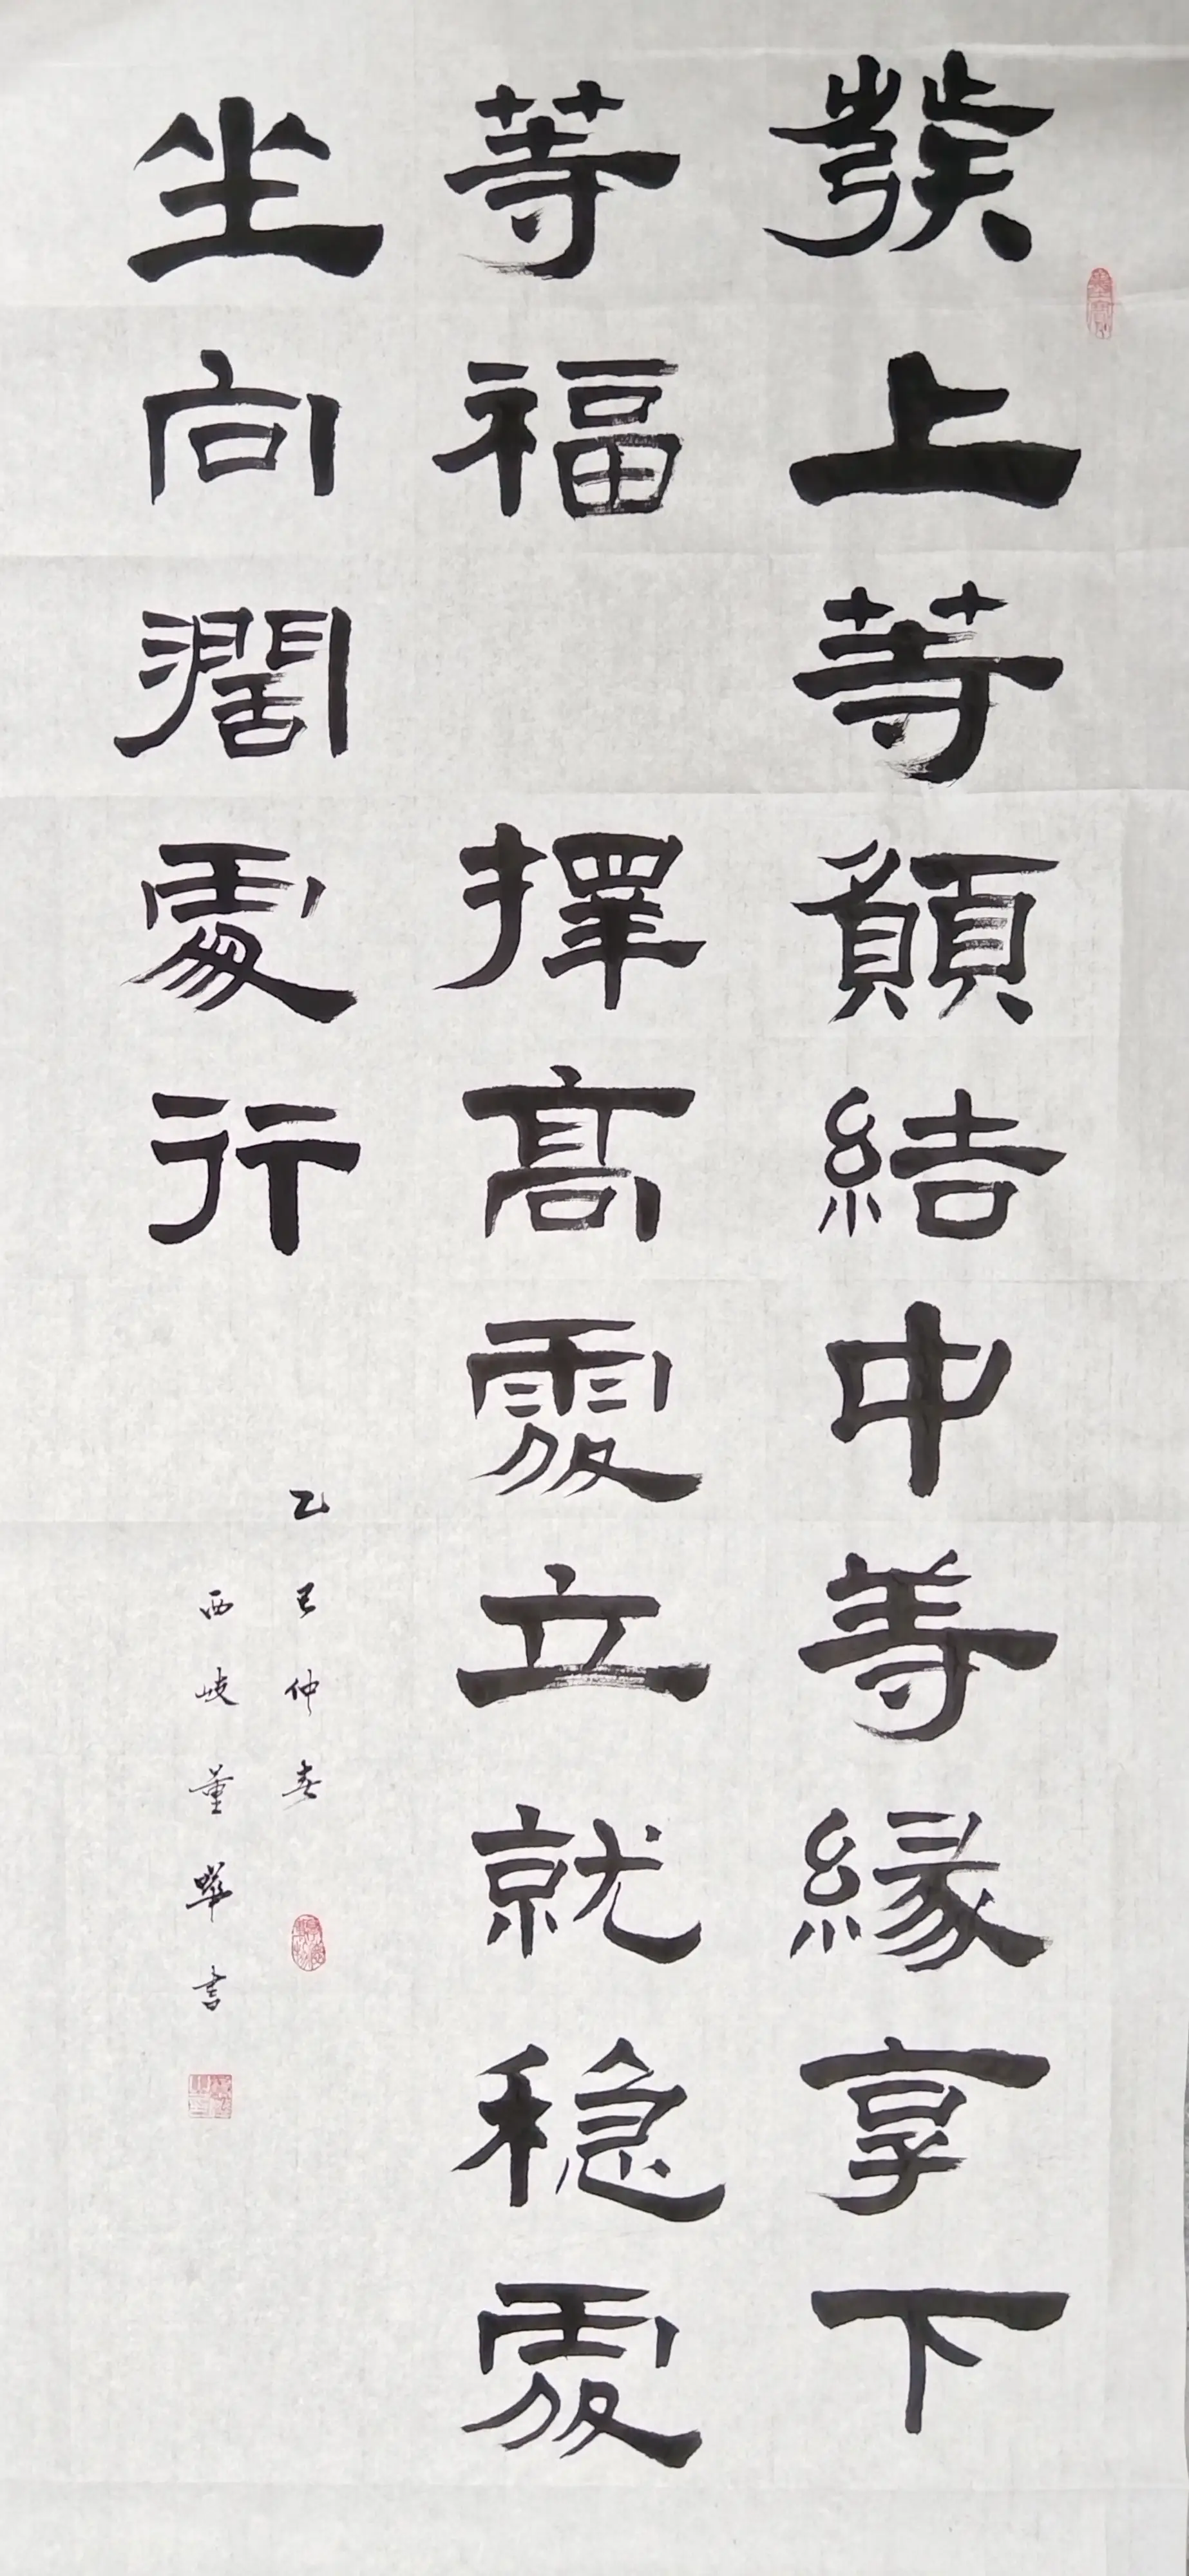 發上等願結中等緣享下
等福 擇高處立就穩處
坐向濶處行
乙巳仲春
西岐董華書